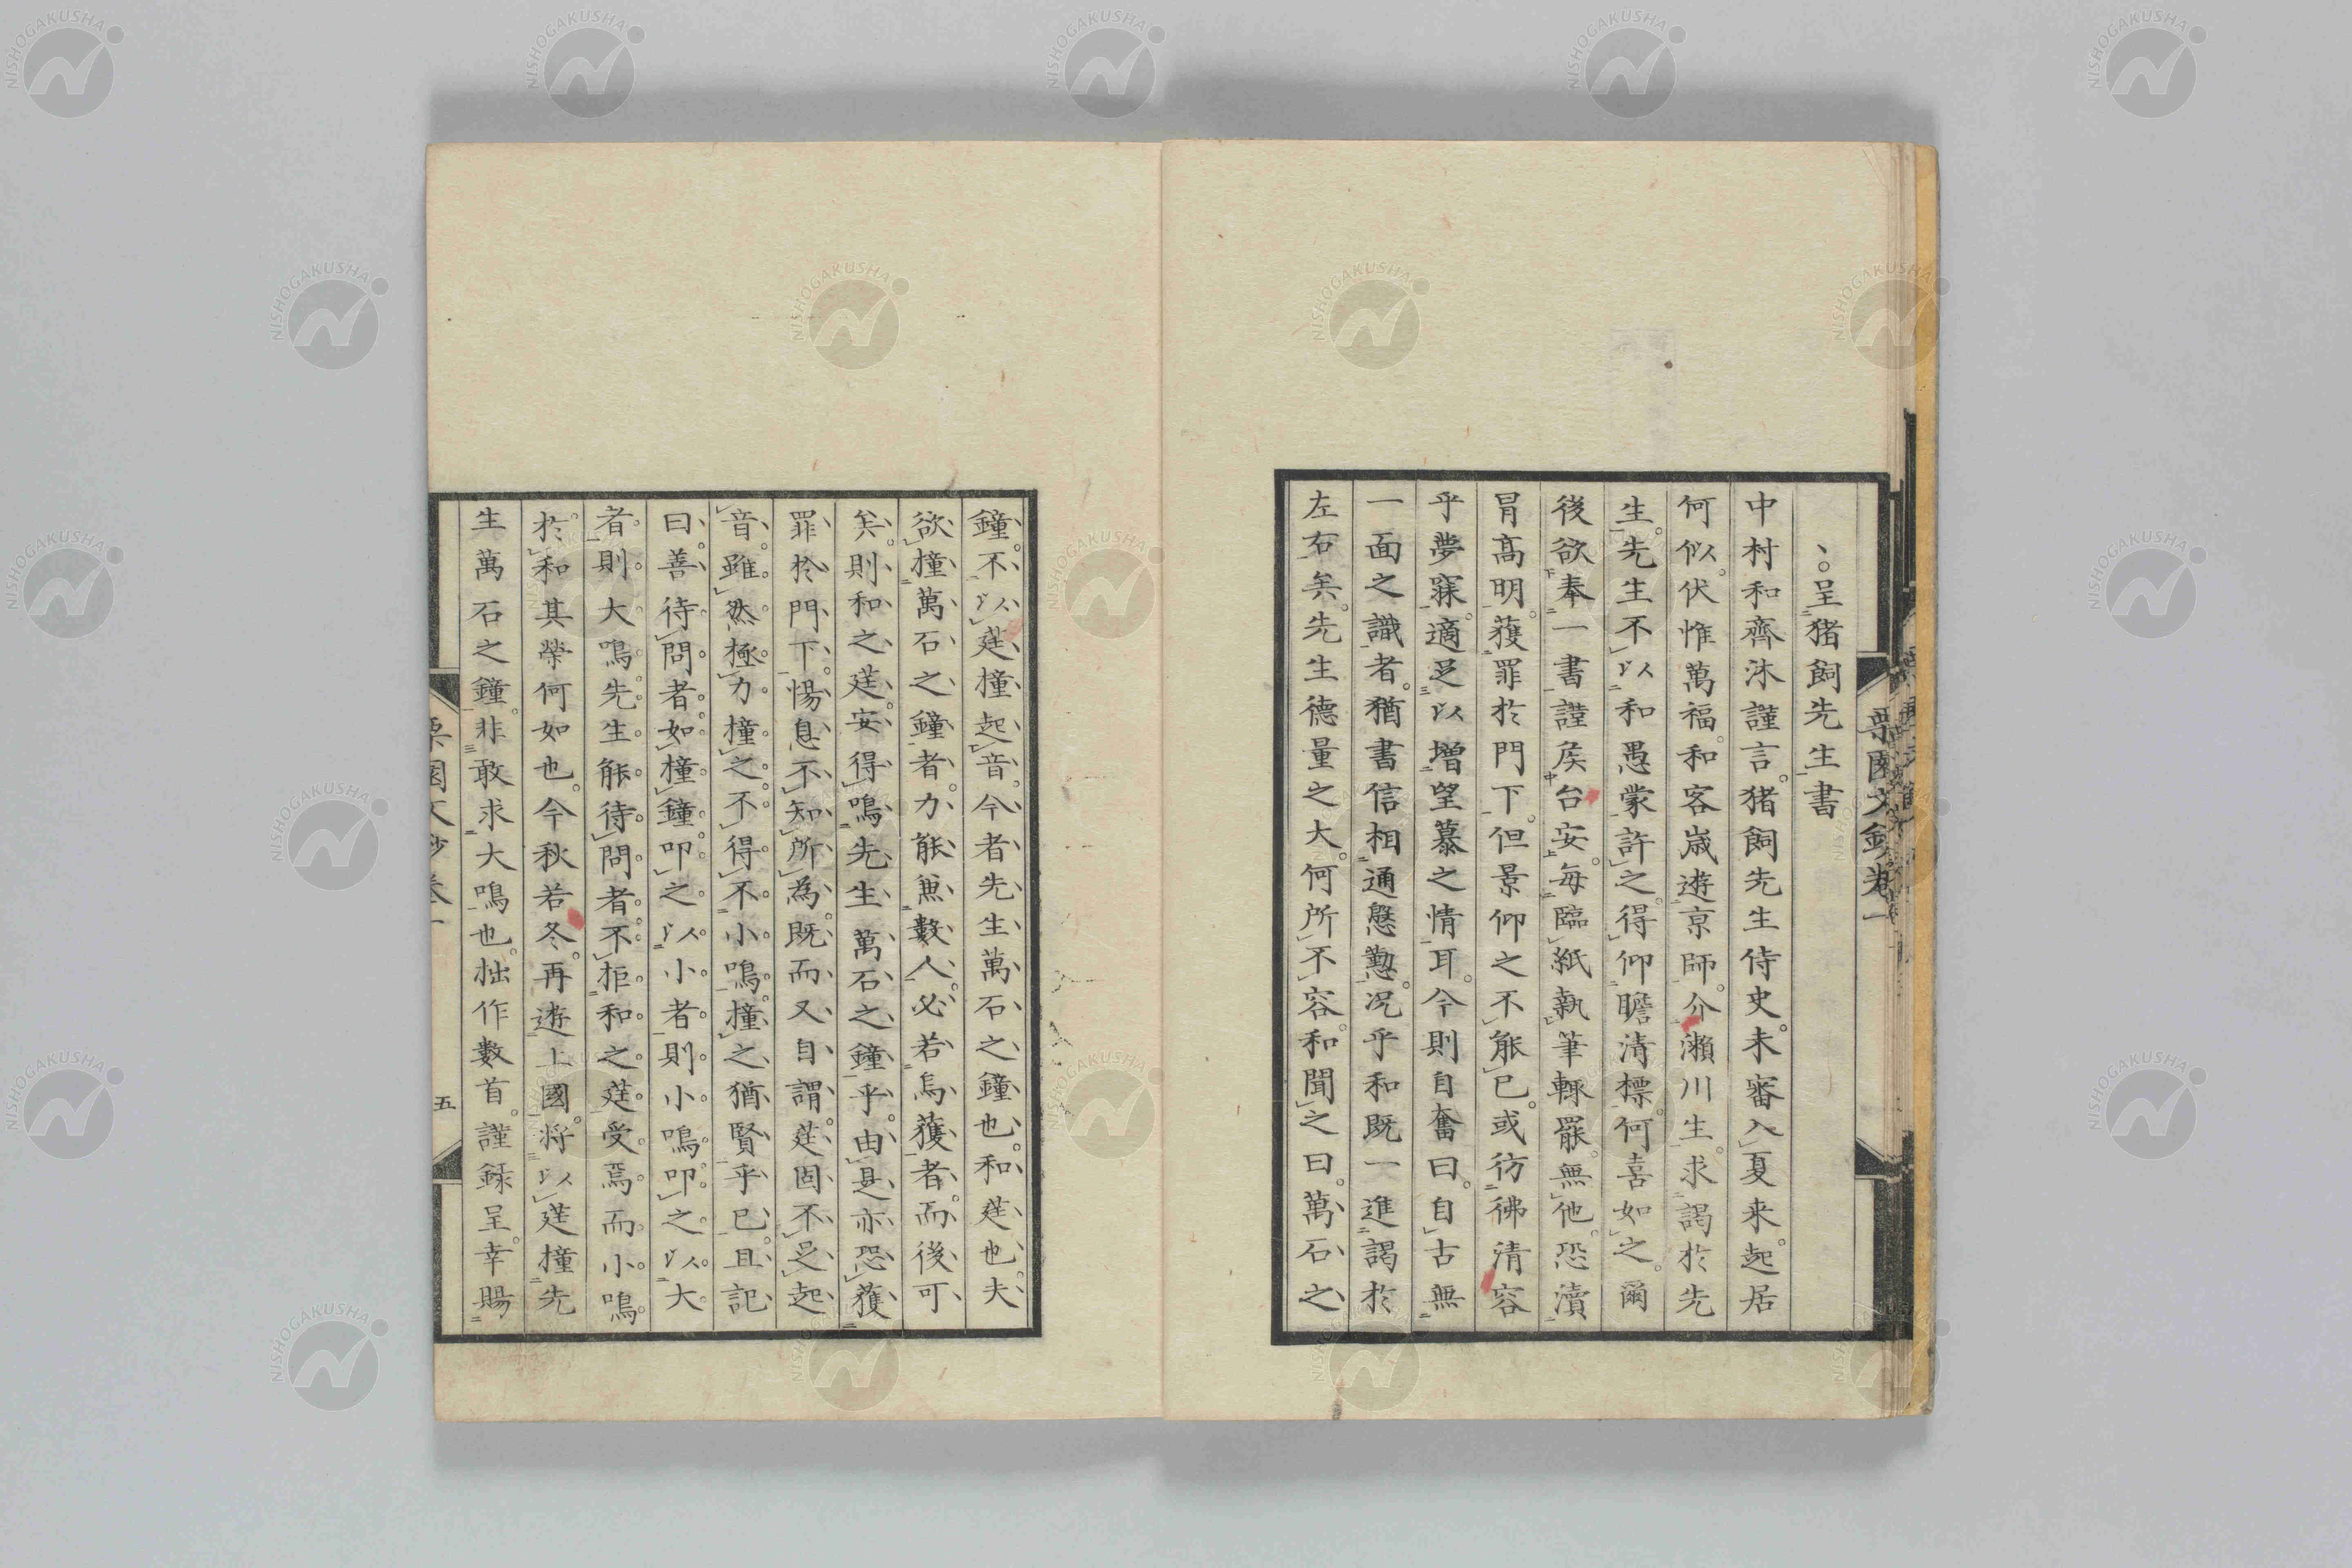 栗園文鈔卷一
呈猪飼先生書
中村和齋沐謹言。猪飼先生侍史。未審入夏来。起居
何似。伏惟萬福。和客歳遊京師。介瀬川生。求謁於先
生。先生不以和愚蒙許之。得仰瞻清標。何喜如之。爾
後欲奉一書謹矦台安。每臨紙執筆輙罷。無他。恐瀆
冐髙明。獲罪於門下。但景仰之不能已。或彷彿清容
乎夢寐。適足以增望慕之情耳。今則自奮曰。自古無
一面之識者。猶書信相通慇懃。况乎和既一進謁於
左右矣。先生德量之大。何所不容。和聞之曰。萬石之
鐘。不以莛撞起音。今者先生萬石之鐘也。和莛也。夫
欲撞萬石之鐘者。力能兼數人。必若烏獲者。而後可
矣。則和之莛。安得鳴先生萬石之鐘乎。由是亦恐獲
罪於門下。惕息不知所為。既而又自謂。莛固不足起
音。雖然極力撞之。不得不小鳴。撞之猶賢乎已。且記
曰。善待問者如撞鐘。叩之以小者則小鳴。叩之以大
者。則大鳴。先生能待問者。不拒和之莛。受焉而小鳴
於和。其榮何如也。今秋若冬。再遊上國。将以莛撞先
生萬石之鐘。非敢求大鳴也。拙作數首。謹錄呈。幸賜
栗園文鈔卷一
五
NISHOGAKUSHA